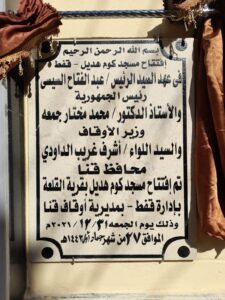 بسم الله الرحمن الرحيم
افتتاح مسجد كوم هديل - قفط
فى عهد السيد الرئيس / عبد الفتاح السيسى
رئيس الجمهورية
والأستاذ الدكتور / محمد مختار جمعه
وزير الأوقاف
والسيد اللواء / أشرف غريب الداودى
محافظ قنا
تم إفتتاح مسجد كوم هديل بقرية القلعة
بإدارة قفط - بمديرية أوقاف قنا
وذلك يوم الجمعه ٢٠٢١/١٢/٣١م
الموافق ٢٧ من شهر جماد أول ١٤٤٣هـ